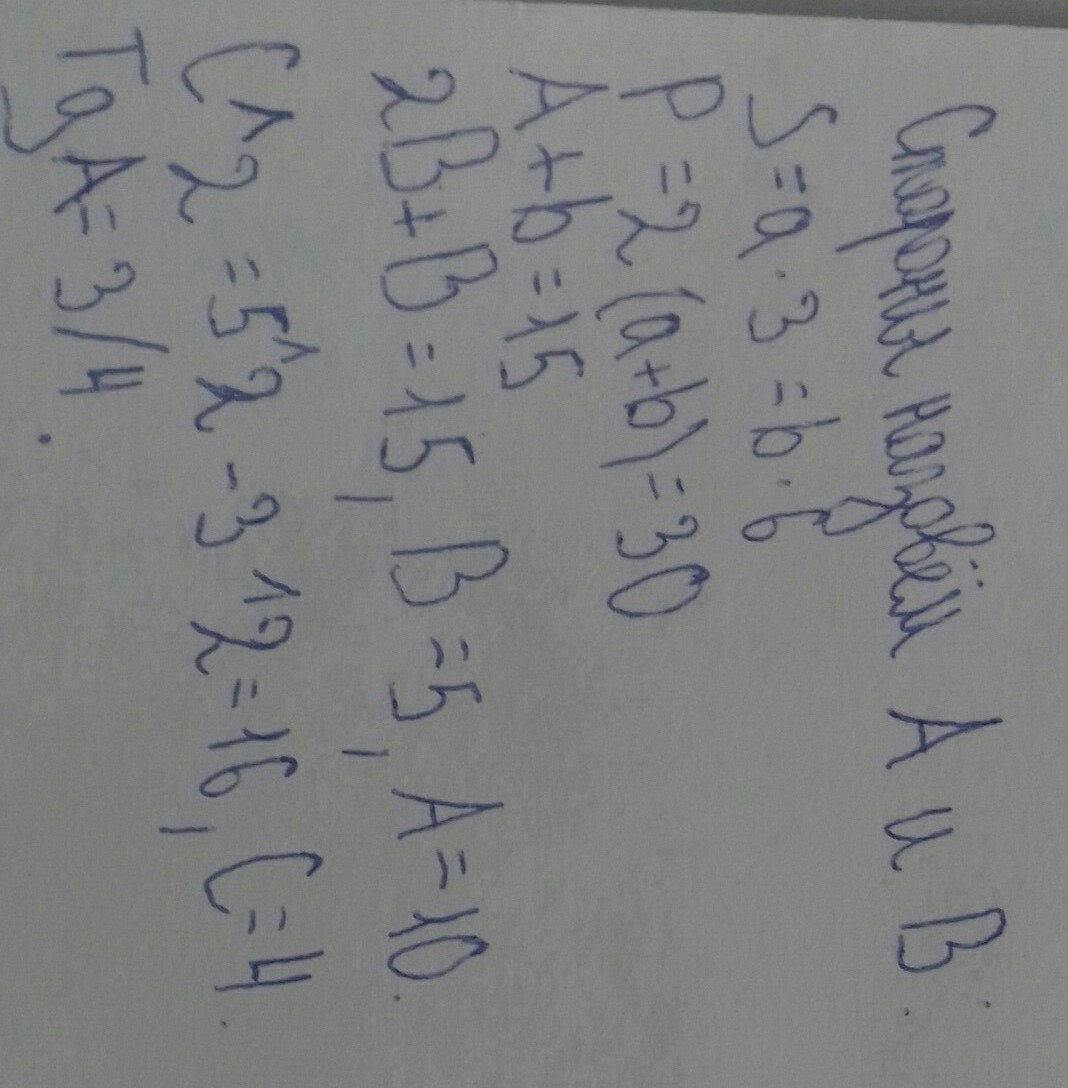 Стороны назовём А и В.
S=a·3=b·6
P=2(a+b)=30
A+b=15
2B+B=15, B=5, A=10.
C^2=5^2-3^2=16, C=4.
Tg A=3/4.